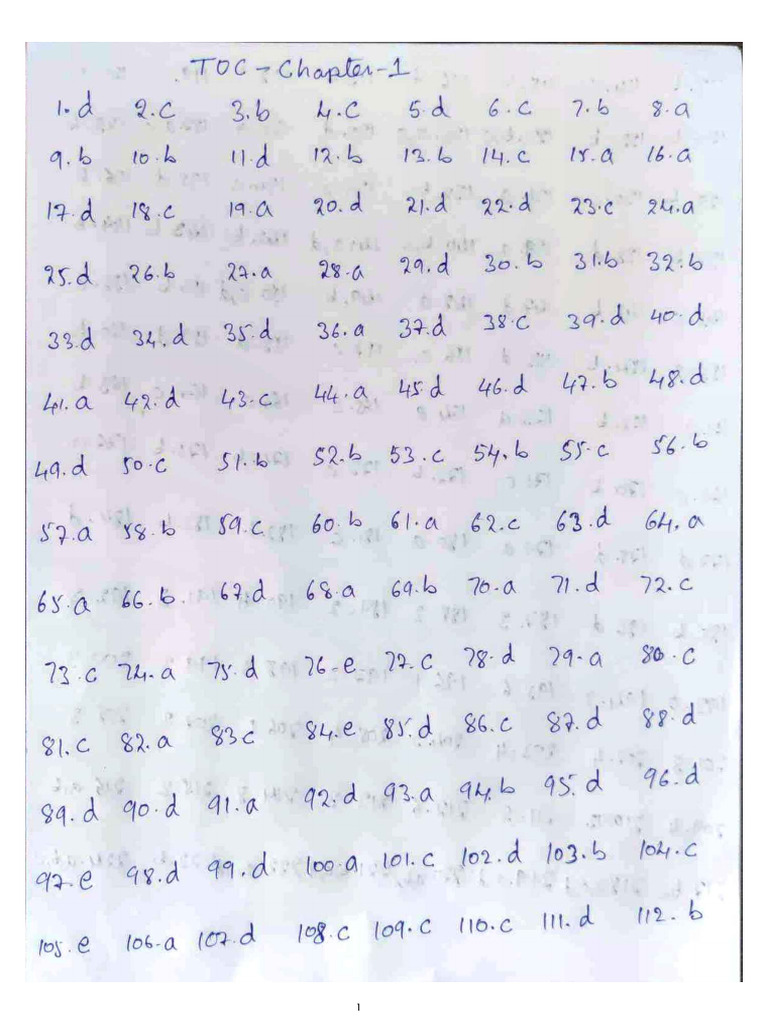 TOC - Chapter-1
1. d 2. c 3. b 4. c 5. d 6. c 7. b 8. a
9. b 10. b 11. d 12. b 13. b 14. c 15. a 16. a
17. d 18. c 19. a 20. d 21. d 22. d 23. c 24. a
25. d 26. b 27. a 28. a 29. d 30. b 31. b 32. b
33. d 34. d 35. d 36. a 37. d 38. c 39. d 40. d
41. a 42. d 43. c 44. a 45. d 46. d 47. b 48. d
49. d 50. c 51. b 52. b 53. c 54. b 55. c 56. b
57. a 58. b 59. c 60. b 61. a 62. c 63. d 64. a
65. a 66. b. 67. d 68. a 69. b 70. a 71. d 72. c
73. c 74. a 75. d 76. e 77. c 78. d 79. a 80. c
81. c 82. a 83 c 84. e 85. d 86. c 87. d 88. d
89. d 90. d 91. a 92. d 93. a 94. b 95. d 96. d
97. e 98. d 99. d 100. a 101. c 102. d 103. b 104. c
105. e 106. a 107. d 108. c 109. c 110. c 111. d 112. b
1